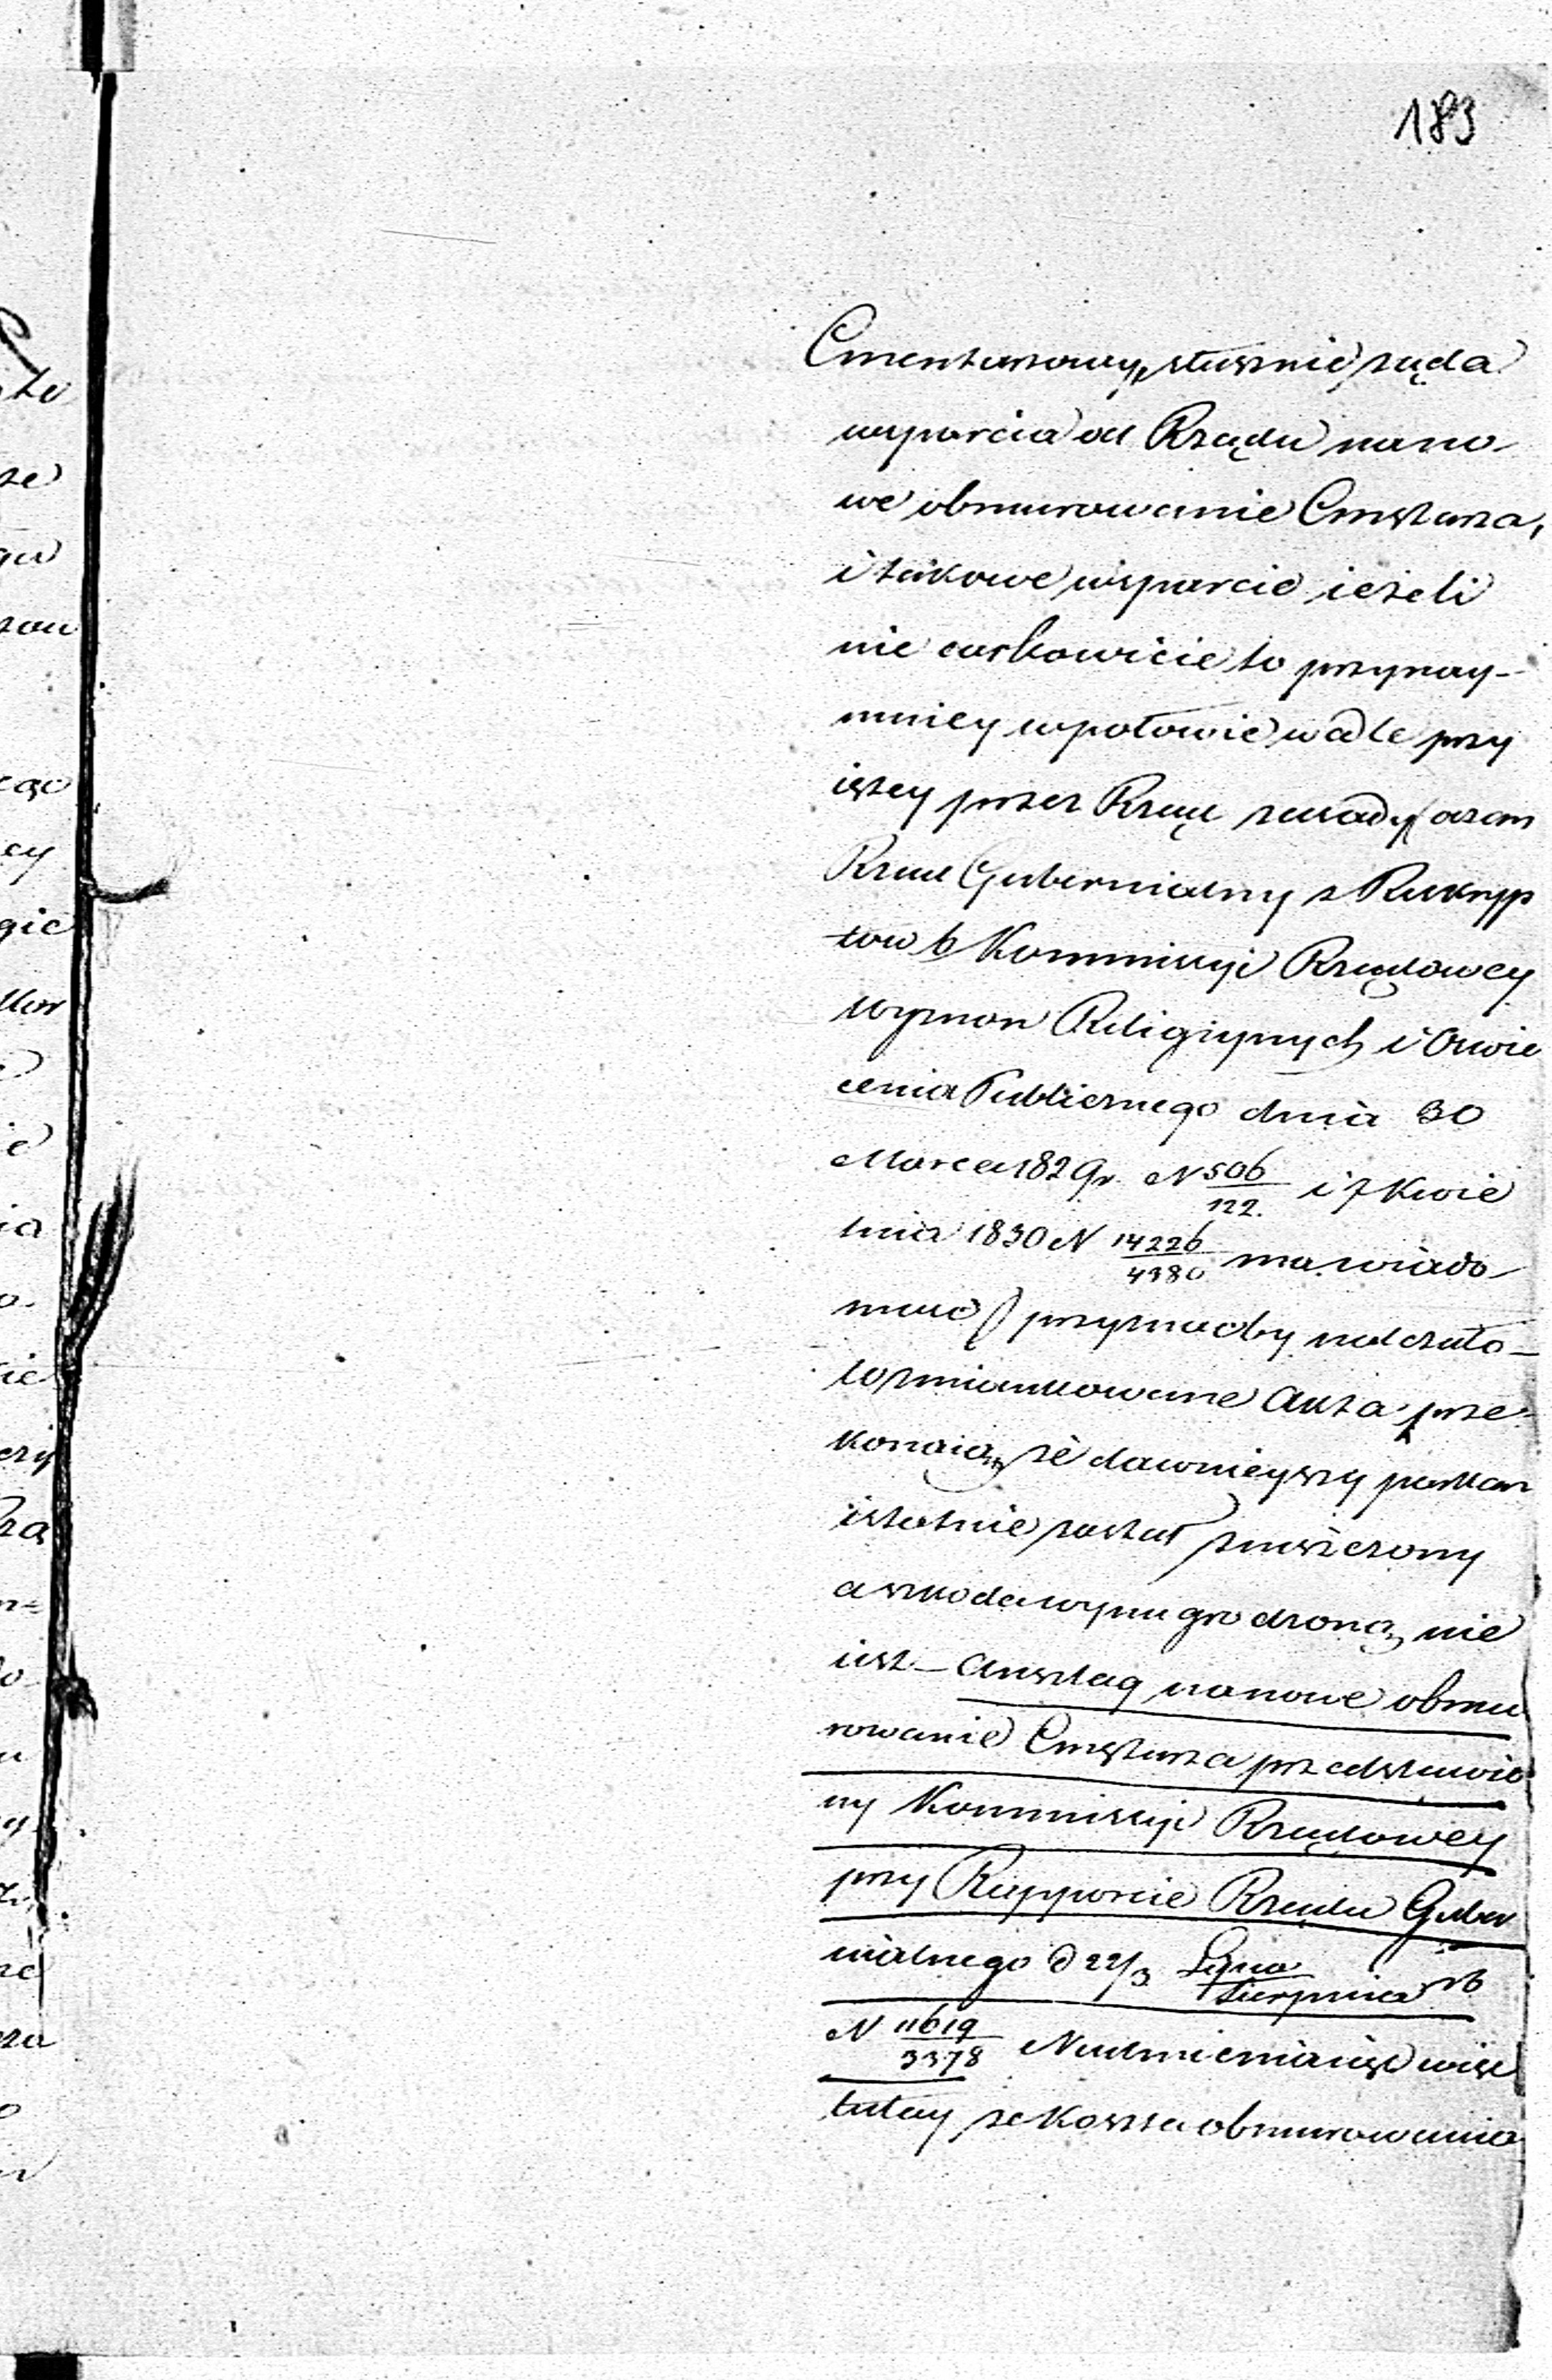 183
Cmentarzowy, słusznie żąda
wsparcia od Rządu na no-
we obmurowanie Cmętarza,
i takowe wsparcie ieżeli
nie całkowicie to przynay-
mniey w połowie wedle przy
iętey przez Rząd zasady (o czem
Rząd Gubernialny z Reskryp
tów b Kommissyi Rządowey
Wyznań Religiynych i Oświe
cenia Publicznego dnia 30
Marca 1829 r. N 506/122. i 7 Kwie
tnia 1830 N 14226/4380 ma wiado-
mość) przyznaćby należało-
Wzmiankowane Akta prze-
konaią, że dawnieyszy parkan
istotnie został zniszczony
a szkoda wynagrodzoną nie
iest – Anszlag na nowe obmu
rowanie Cmętarza przedstawio
ny Kommissyi Rządowey
przy Rapporcie Rządu Guber
nialnego d 22/3 Lipca/Sierpnia rb
N 11619/3378 Nadmienia się więc
tutay że koszta obmurowania